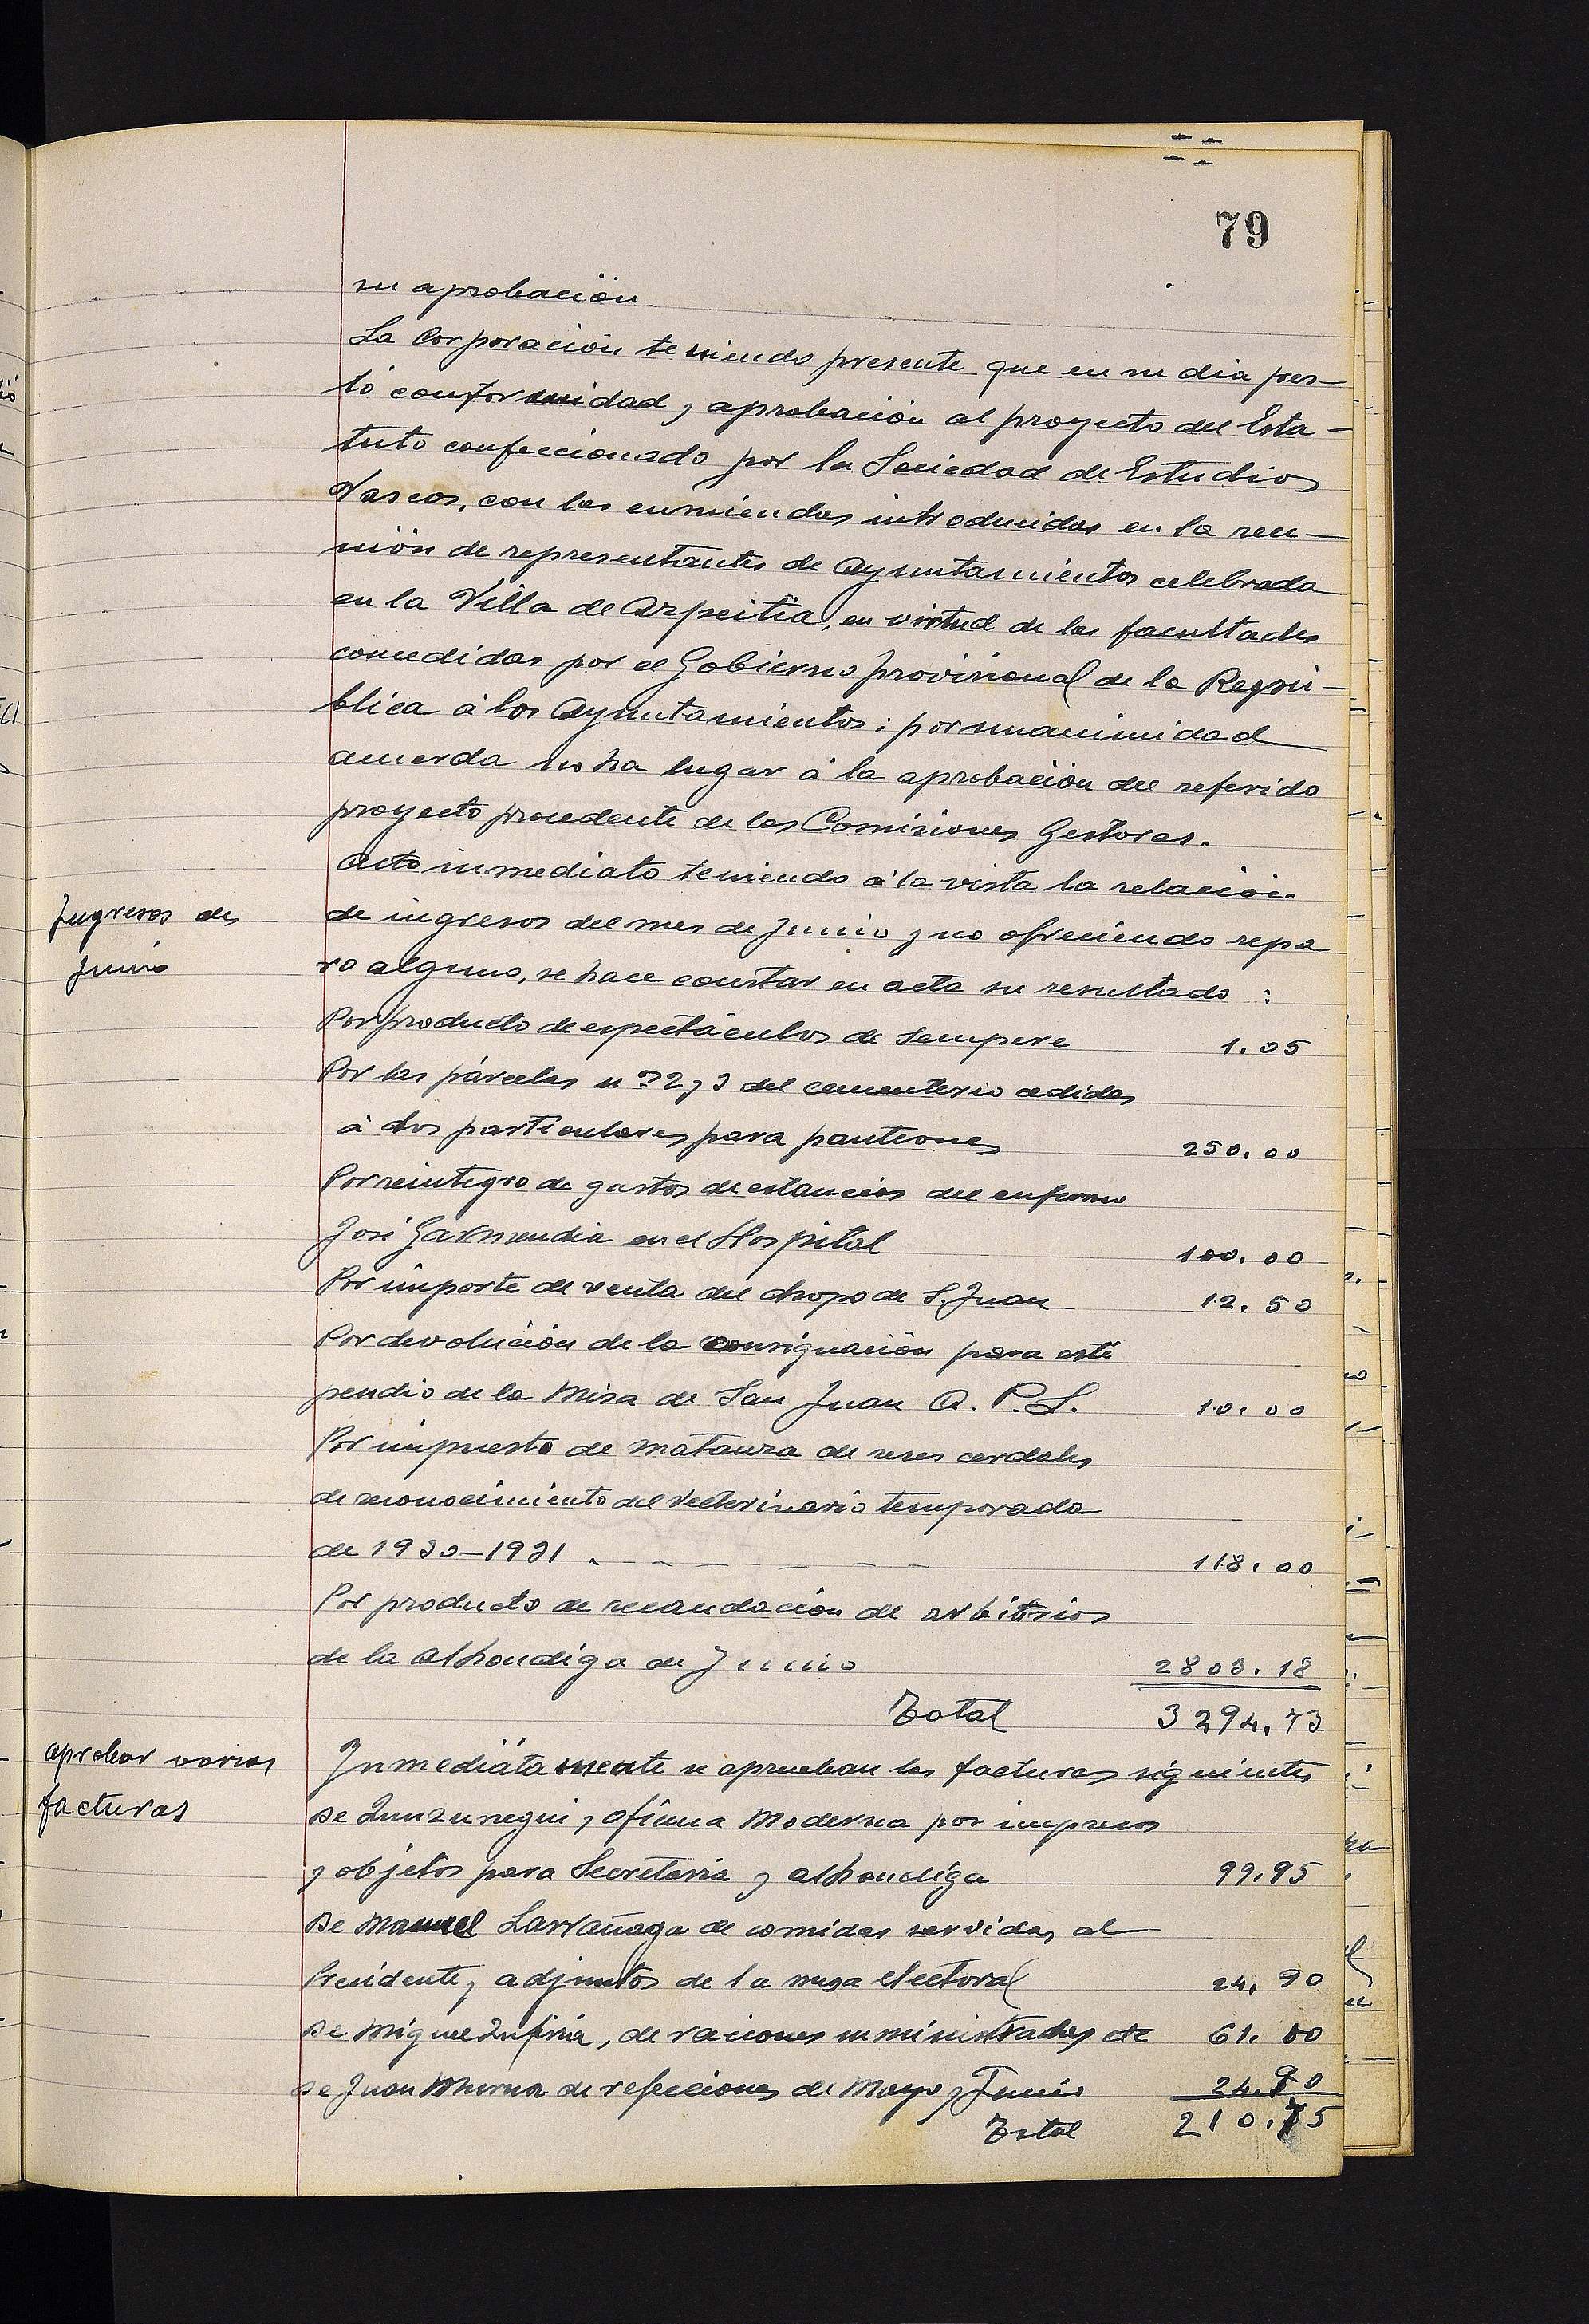 79
su aprobación
La Corporación teniendo presente que en su dia pres-
tó conformidad y aprobación al proyecto del Esta-
tuto confeccionado por la Sociedad de Estudios
Vascos, con las enmiendas introducidas en la reu-
nión de representantes de Ayuntamientos celebrada
en la Villa de Azpeitia, en virtud de las facultades
concedidas por el Gobierno provisional de la Repú-
blica á los Ayuntamientos; por unanimidad
acuerda no ha lugar á la aprobación del referido
proyecto procedente de las Comisiones Gestoras.
Acto inmediato teniendo á la vista la relación
Ingresos de
Junio
de ingresos del mes de Junio y no ofreciendo repa
ro alguno, se hace constar en acta su resultado :
Por producto de espectáculos de Sempere 1.05
Por las párcelas nº 2 y 3 del cementerio cedidas
á dos particulares para panteones 250.00
Por reintegro de gastos de estancias del enfermo
José Garmendia en el Hospital 100.00
Por importe de venta del chopo de S. Juan 12.50
Por devolución de la consignación para esti
pendio de la Misa de San Juan A. P. L. 10.00
Por impuesto de matanza de reses cerdales
de reconocimiento del Veterinario temporada
de 1930-1931 . - - - - 118.00
Por producto de recaudación de arbitrios
de la Alhondiga de Junio 2803.18
Total 3294.73
Aprobar varias
facturas
Inmediátamente se aprueban las facturas siguientes
De Zunzunegui y Oficina Moderna por impresos
y objetos para Secretaria y alhondiga 99.95
De Manuel Larrañaga de comidas servidas al
Presidente y adjuntos de la mesa electoral 24.90
De Miguel Zufiria, de raciones suministradas etc 61.00
De Juan de refecciones de Mayo y Junio 24.90
Total 210.75